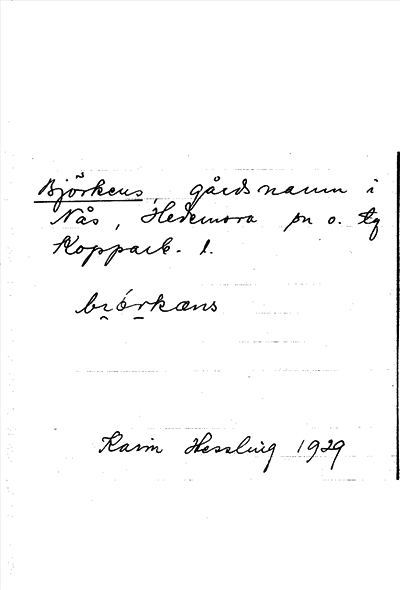 Björkens, gårdsnamn i
Nås, Hedemora sn o. tg
Kopparb. l.
bı̯órkæns
Karin Hessling 1929